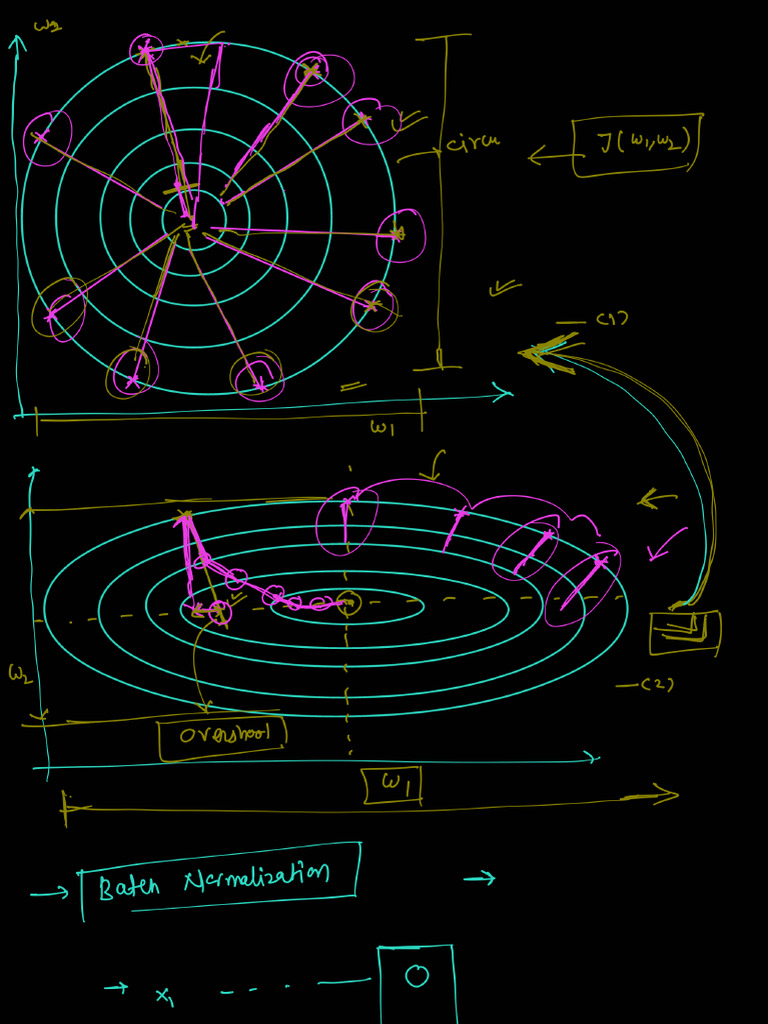 w2
circu
J(w1,w2)
—(1)
w1
w2
—(2)
Overshoot
w1
→ Batch Normalization →
→ x1 - - - . —